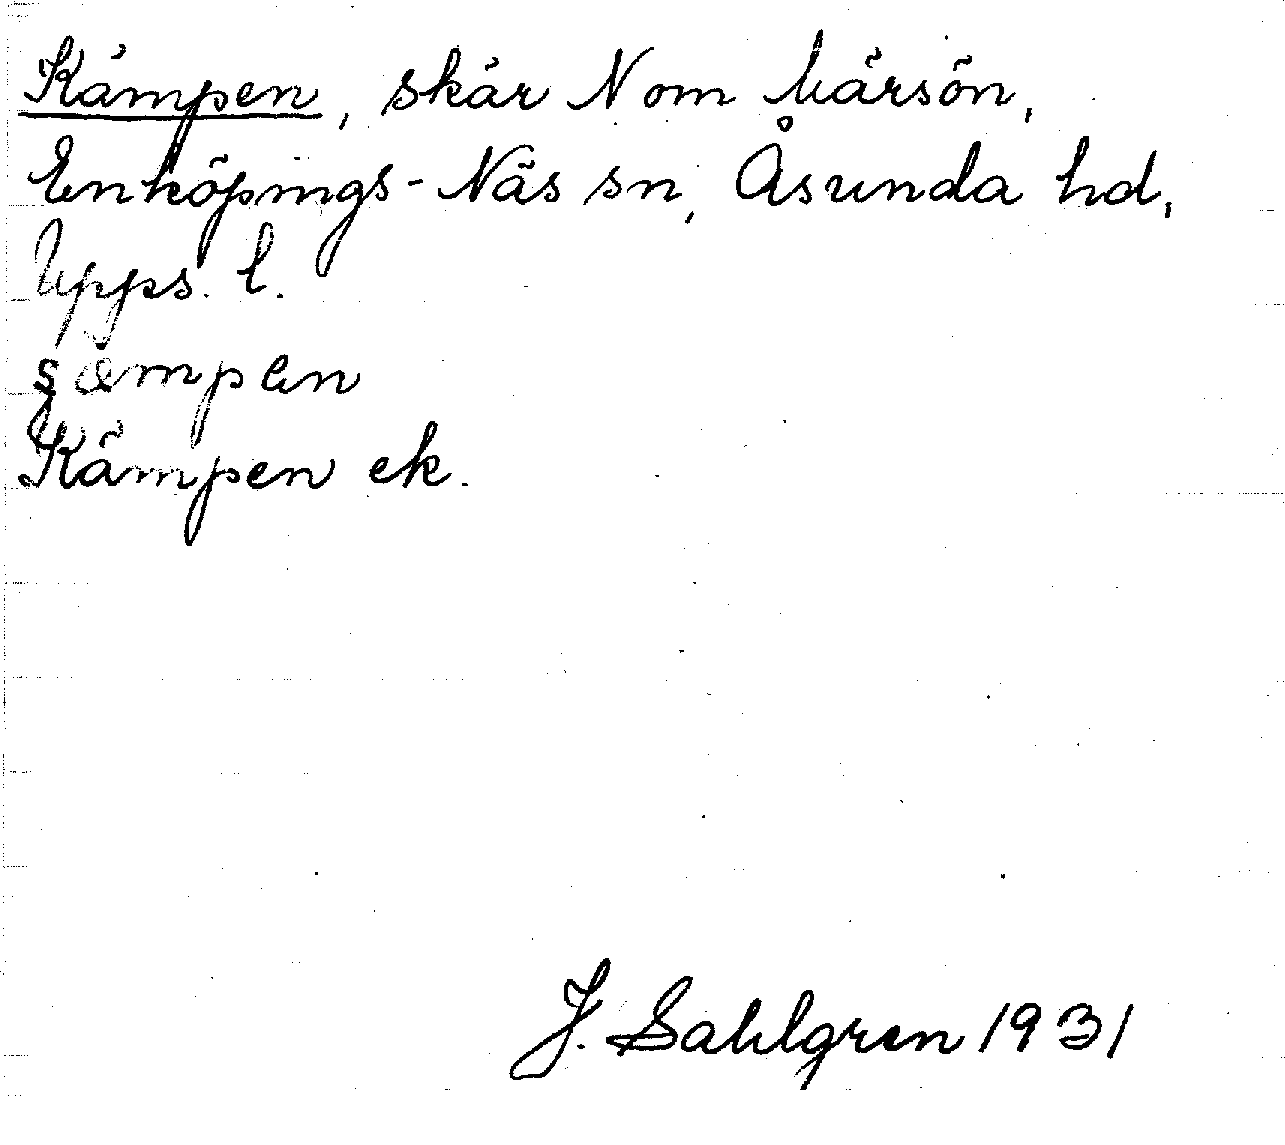 Kämpen, skär N om Märsön,
Enköpings-Näs sn, Åsunda hd,
Upps. l.
Kämpen ek.
J. Sahlgren 1931